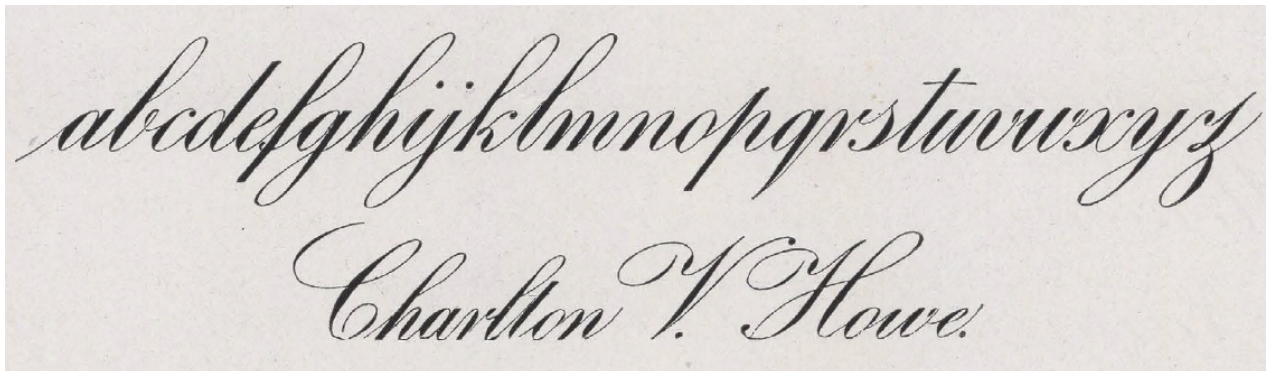 abcdefghijklmnopqrstuvwxyz
Charlton V. Howe.